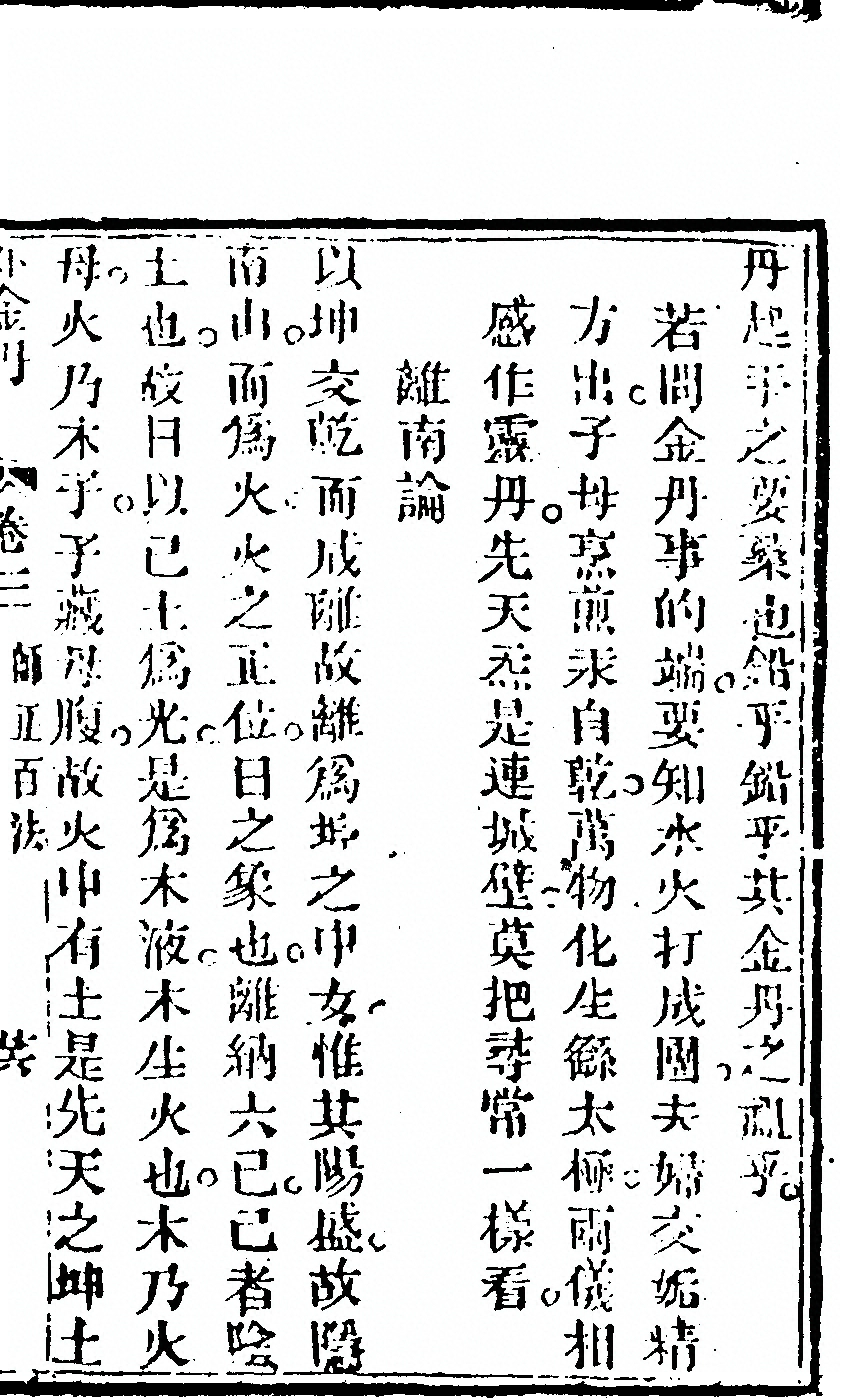 丹起乎之要藥也鉛乎鉛乎其金丹之祖乎
若問金丹事的端要知水火打成團夫婦交姤精
方出子母烹煎汞自乾萬物化生繇太極兩儀相
感作靈丹先天炁是連城壁莫把尋常一樣看
離南論
以坤交乾而成離故離爲坤之中女惟其陽盛故陽
南山而爲火火之正位日之象也離納六己己者陰
土也故曰以己土爲光是爲木液木生火也木乃火
母火乃木子子藏母腹故火中有土是先天之坤土
外金丹 卷二 師正百法 共